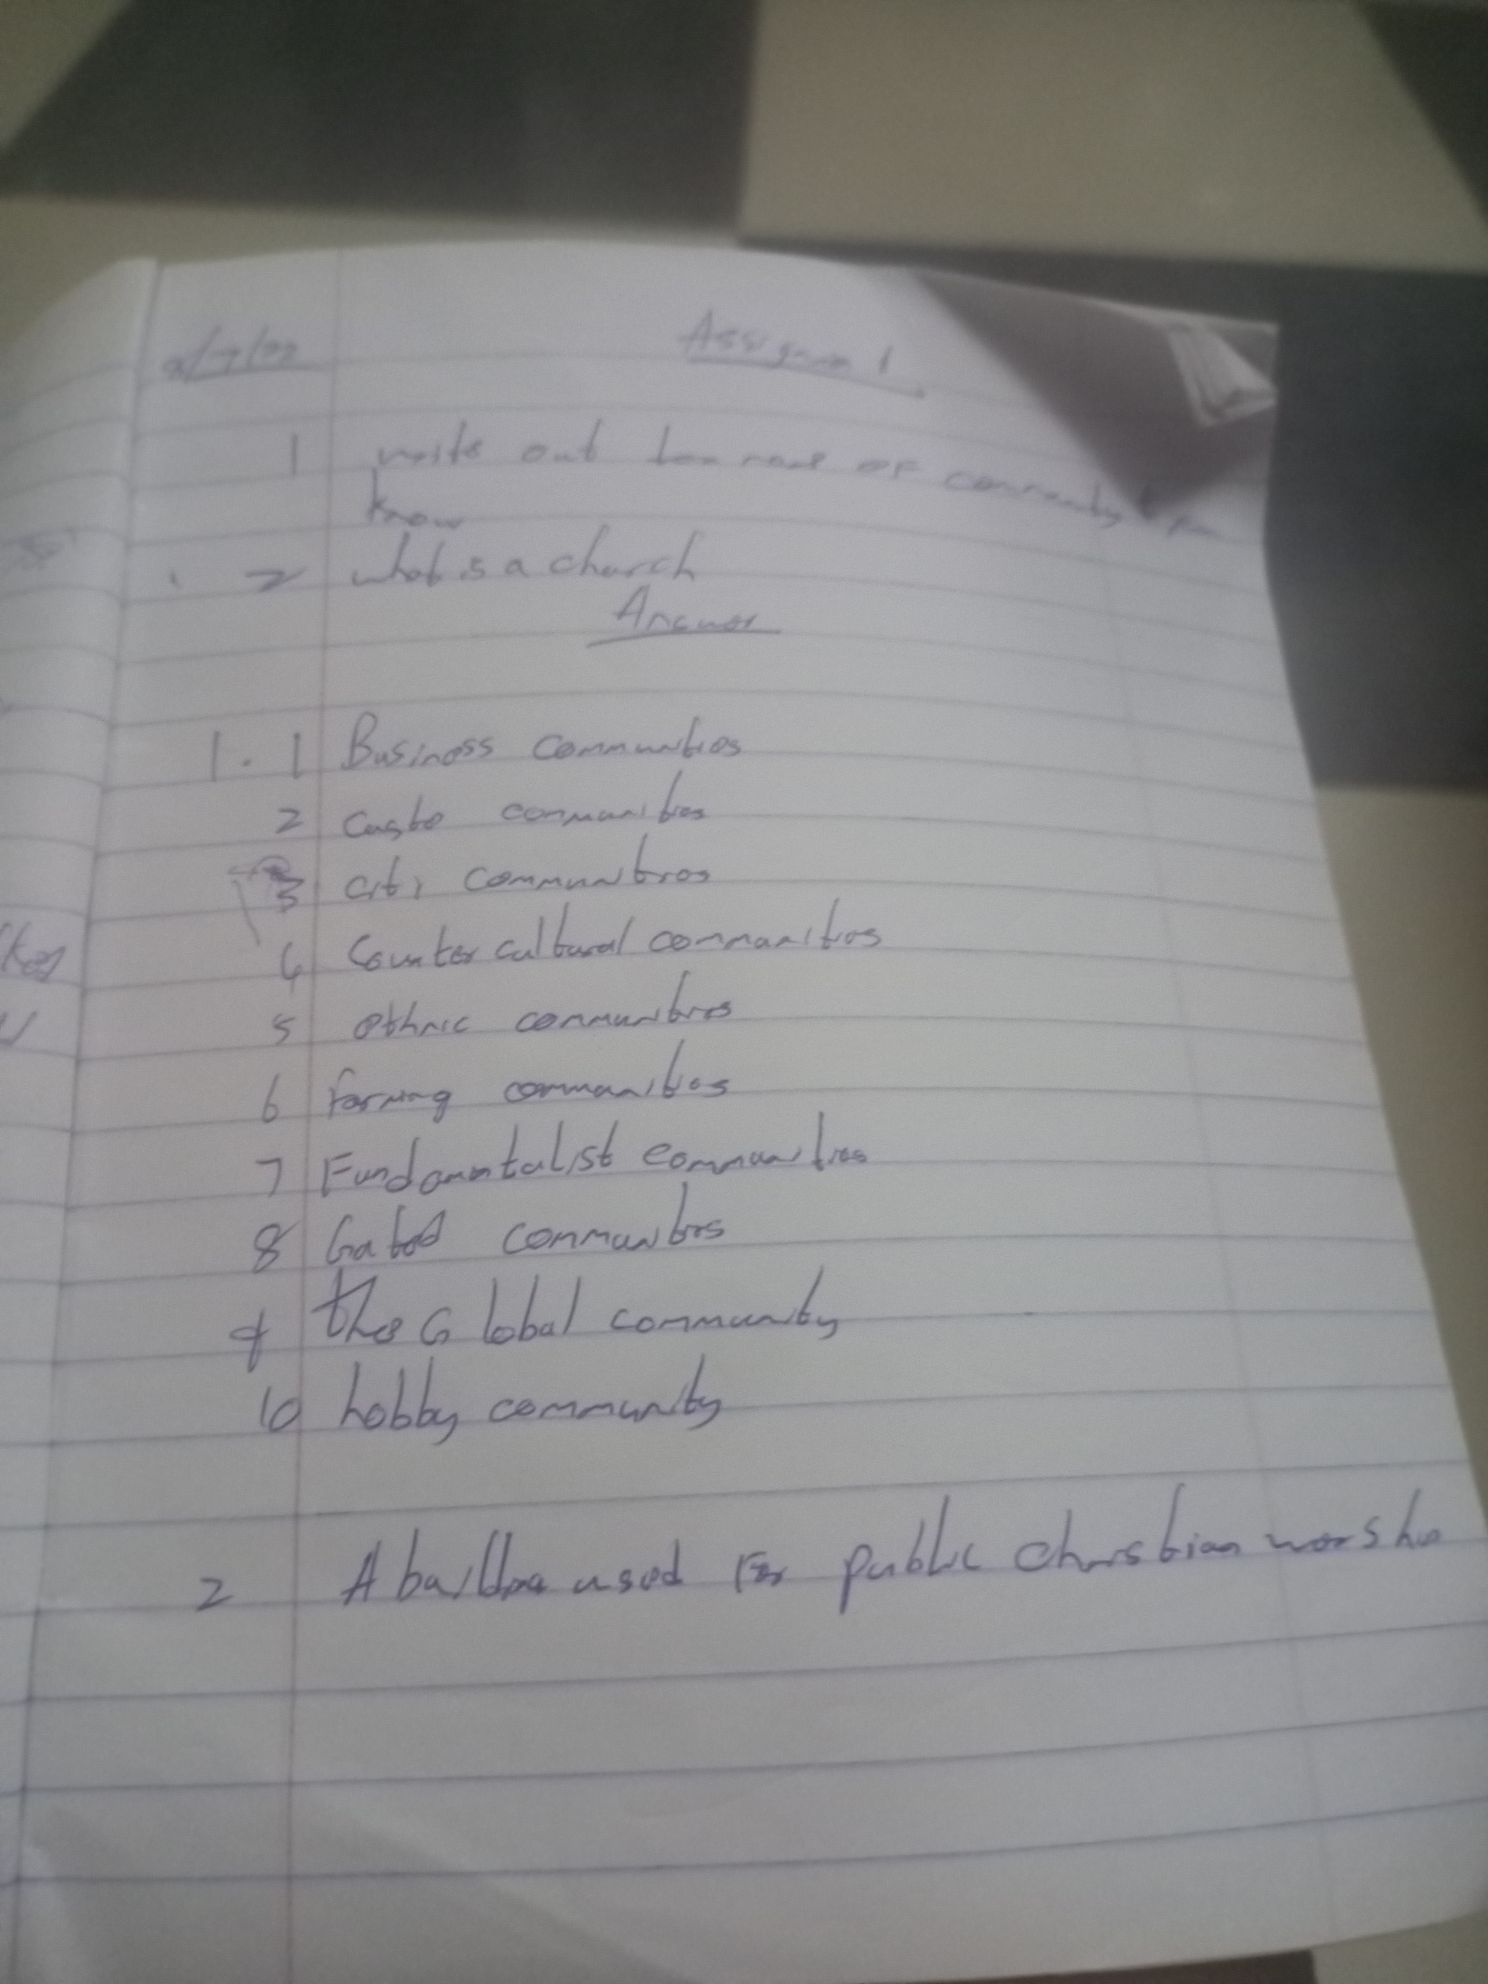 Assignm 1
1 write out ten name of community
know
2 what is a church
Answer
1. 1 Business communities
2 Caste communities
3 citi communities
4 Counter cultural communities
5 ethnic communities
6 farming communities
7 Fundamentalist communities
8 Gated communities
9 the Global community
10 hobby community
2 A building used For public christian worship